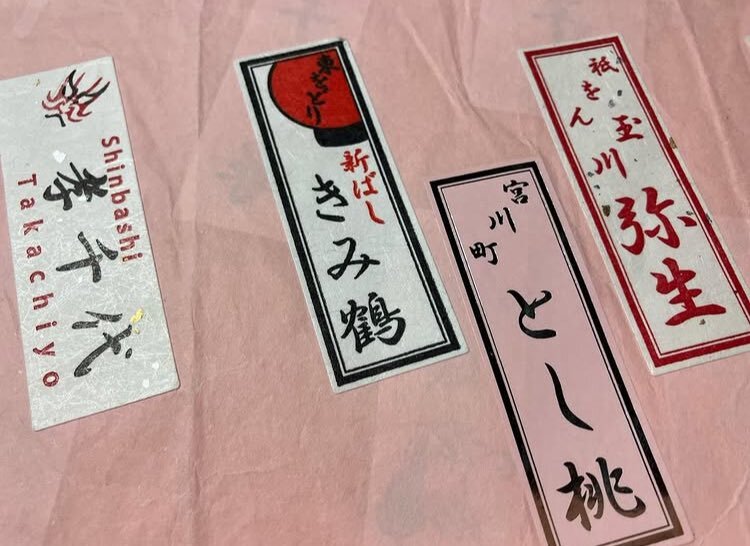 Shinbashi
孝千代
Takachiyo
東をどり
新ばし
きみ鶴
宮川町
とし桃
祇をん
玉川
弥生